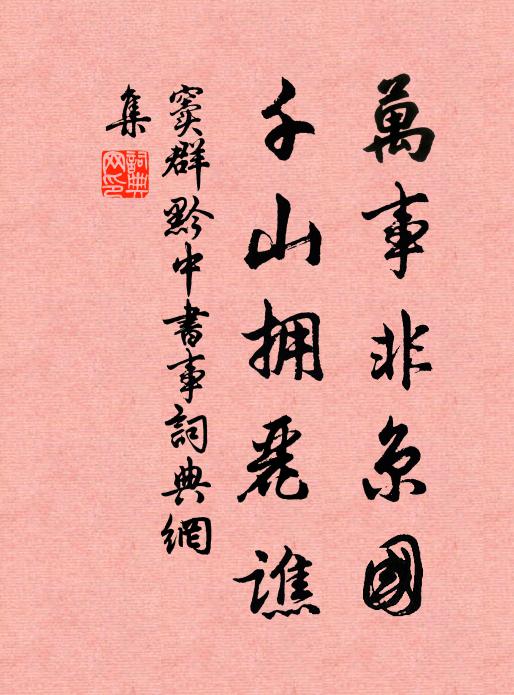 萬事非京國
千山拥麗譙
窦群黔中書事詞典網
集
詞典网印